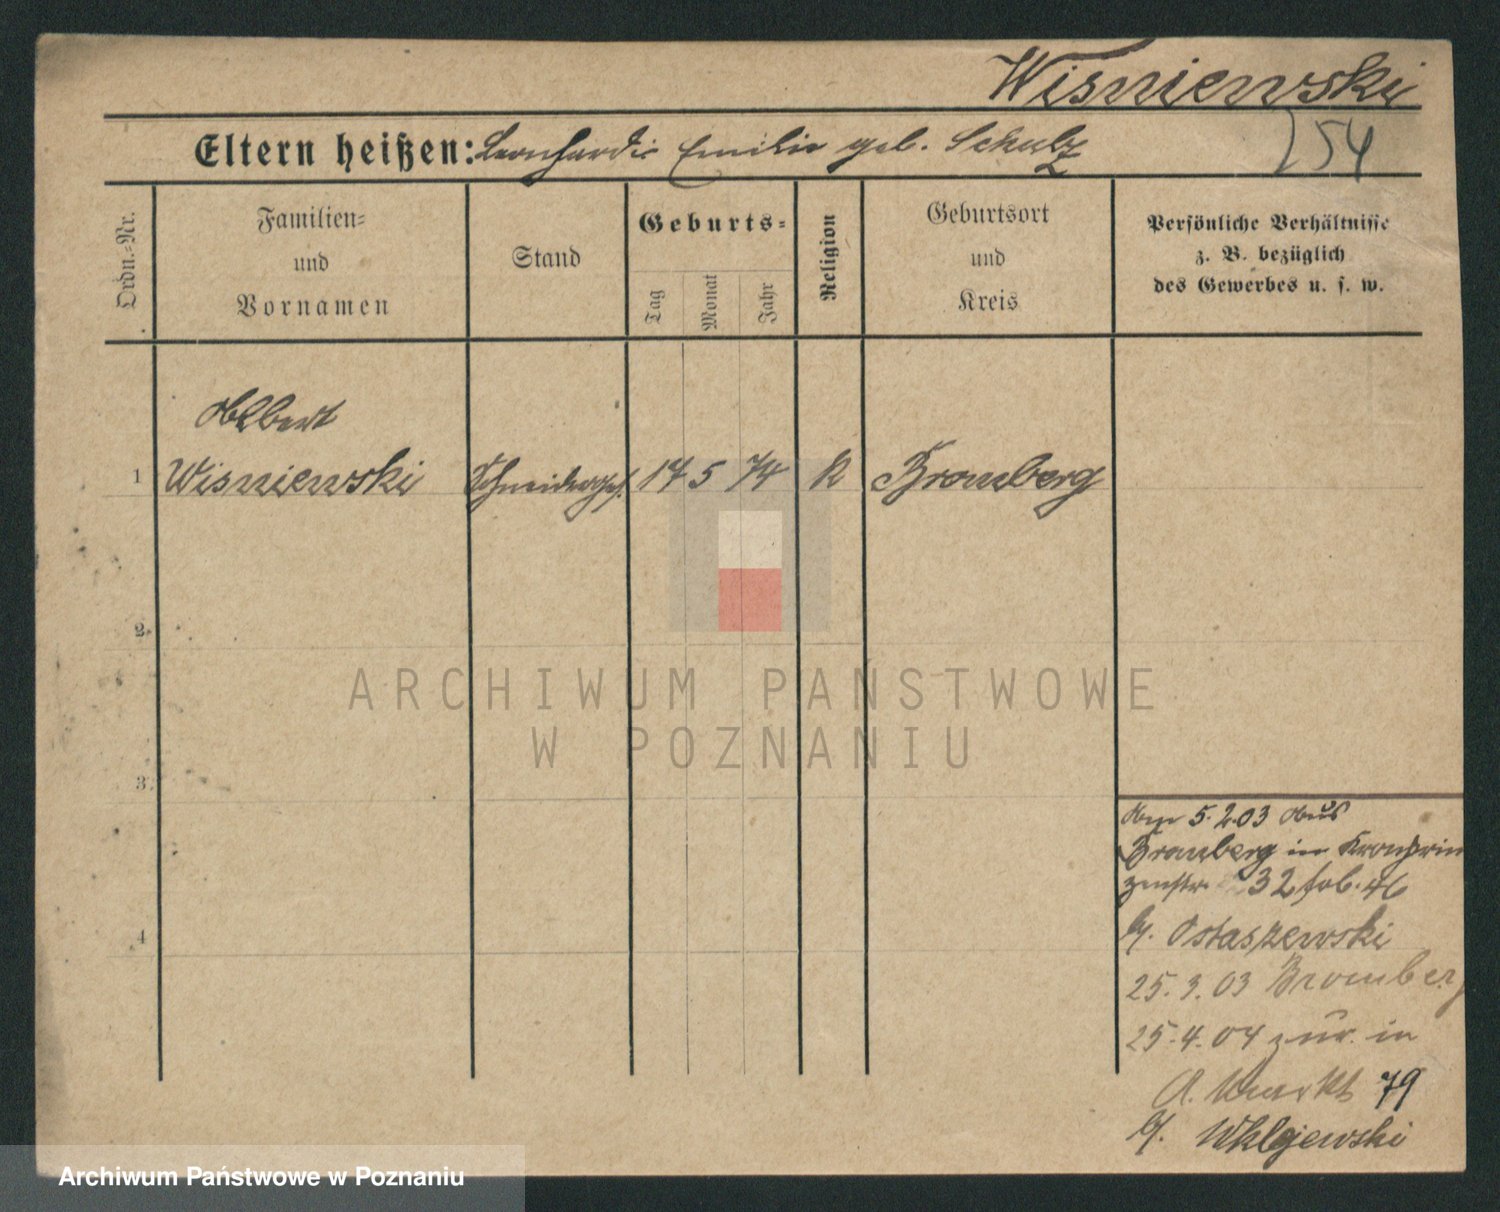 Wisniewski
Eltern heißen: Leonhardis Emilie geb. Schulz
254
Ordn.-Nr.
Familien-
und
Vornamen
Stand
Geburts-
Tag
Monat
Jahr
Religion
Geburtsort
und
Kreis
Persönliche Verhältnisse
z. B. bezüglich
des Gewerbes u. s. w.
Albert
1 Wisniewski Schneiderges. 17 5 74 K Bromberg
2.
3.
4
5.2.03 aus
Bromberg in Kronprin
zenstr. 32 feb. 46
b/. Ostaszewski
25.3.03 Bromberg
25.4.04 zur. in
A. Markt 79
b/.
ARCHIWUM PAŃSTWOWE
W POZNANIU
Archiwum Państwowe w Poznaniu